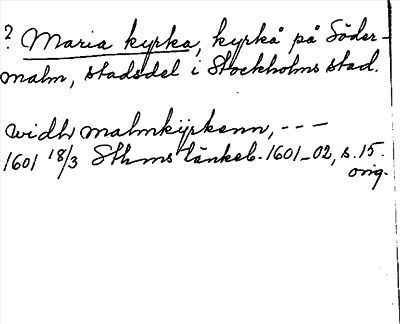 ? Maria kyrka, kyrka på Söder-
malm, stadsdel i Stockholms stad.
widh malmkÿrkenn, - - -
1601 18/3 Sthms tänkeb. 1601-02, s. 15.
orig.